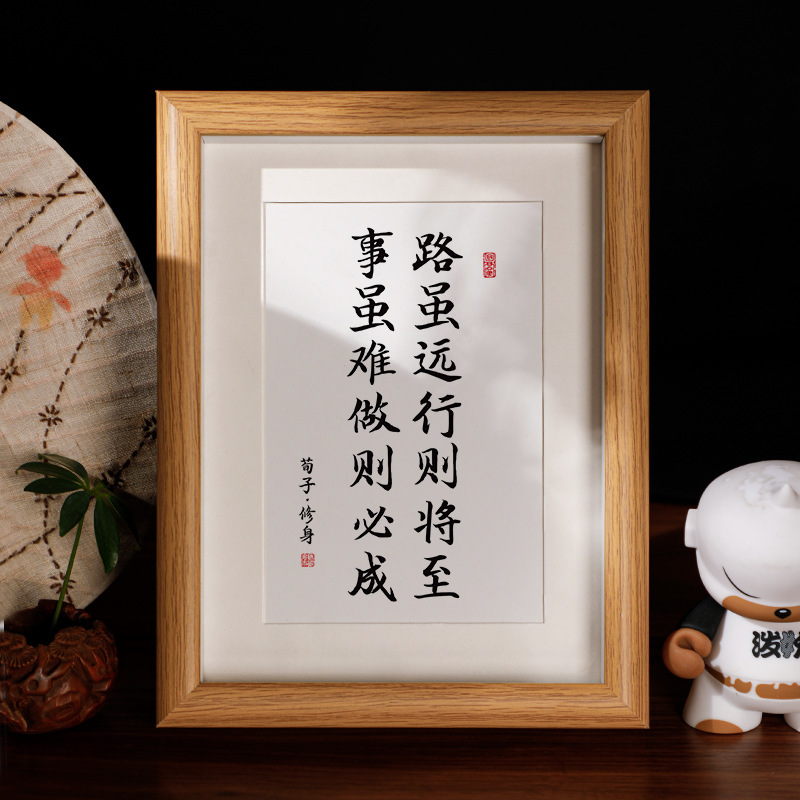 路虽远行则将至
事虽难做则必成
荀子·修身
泼